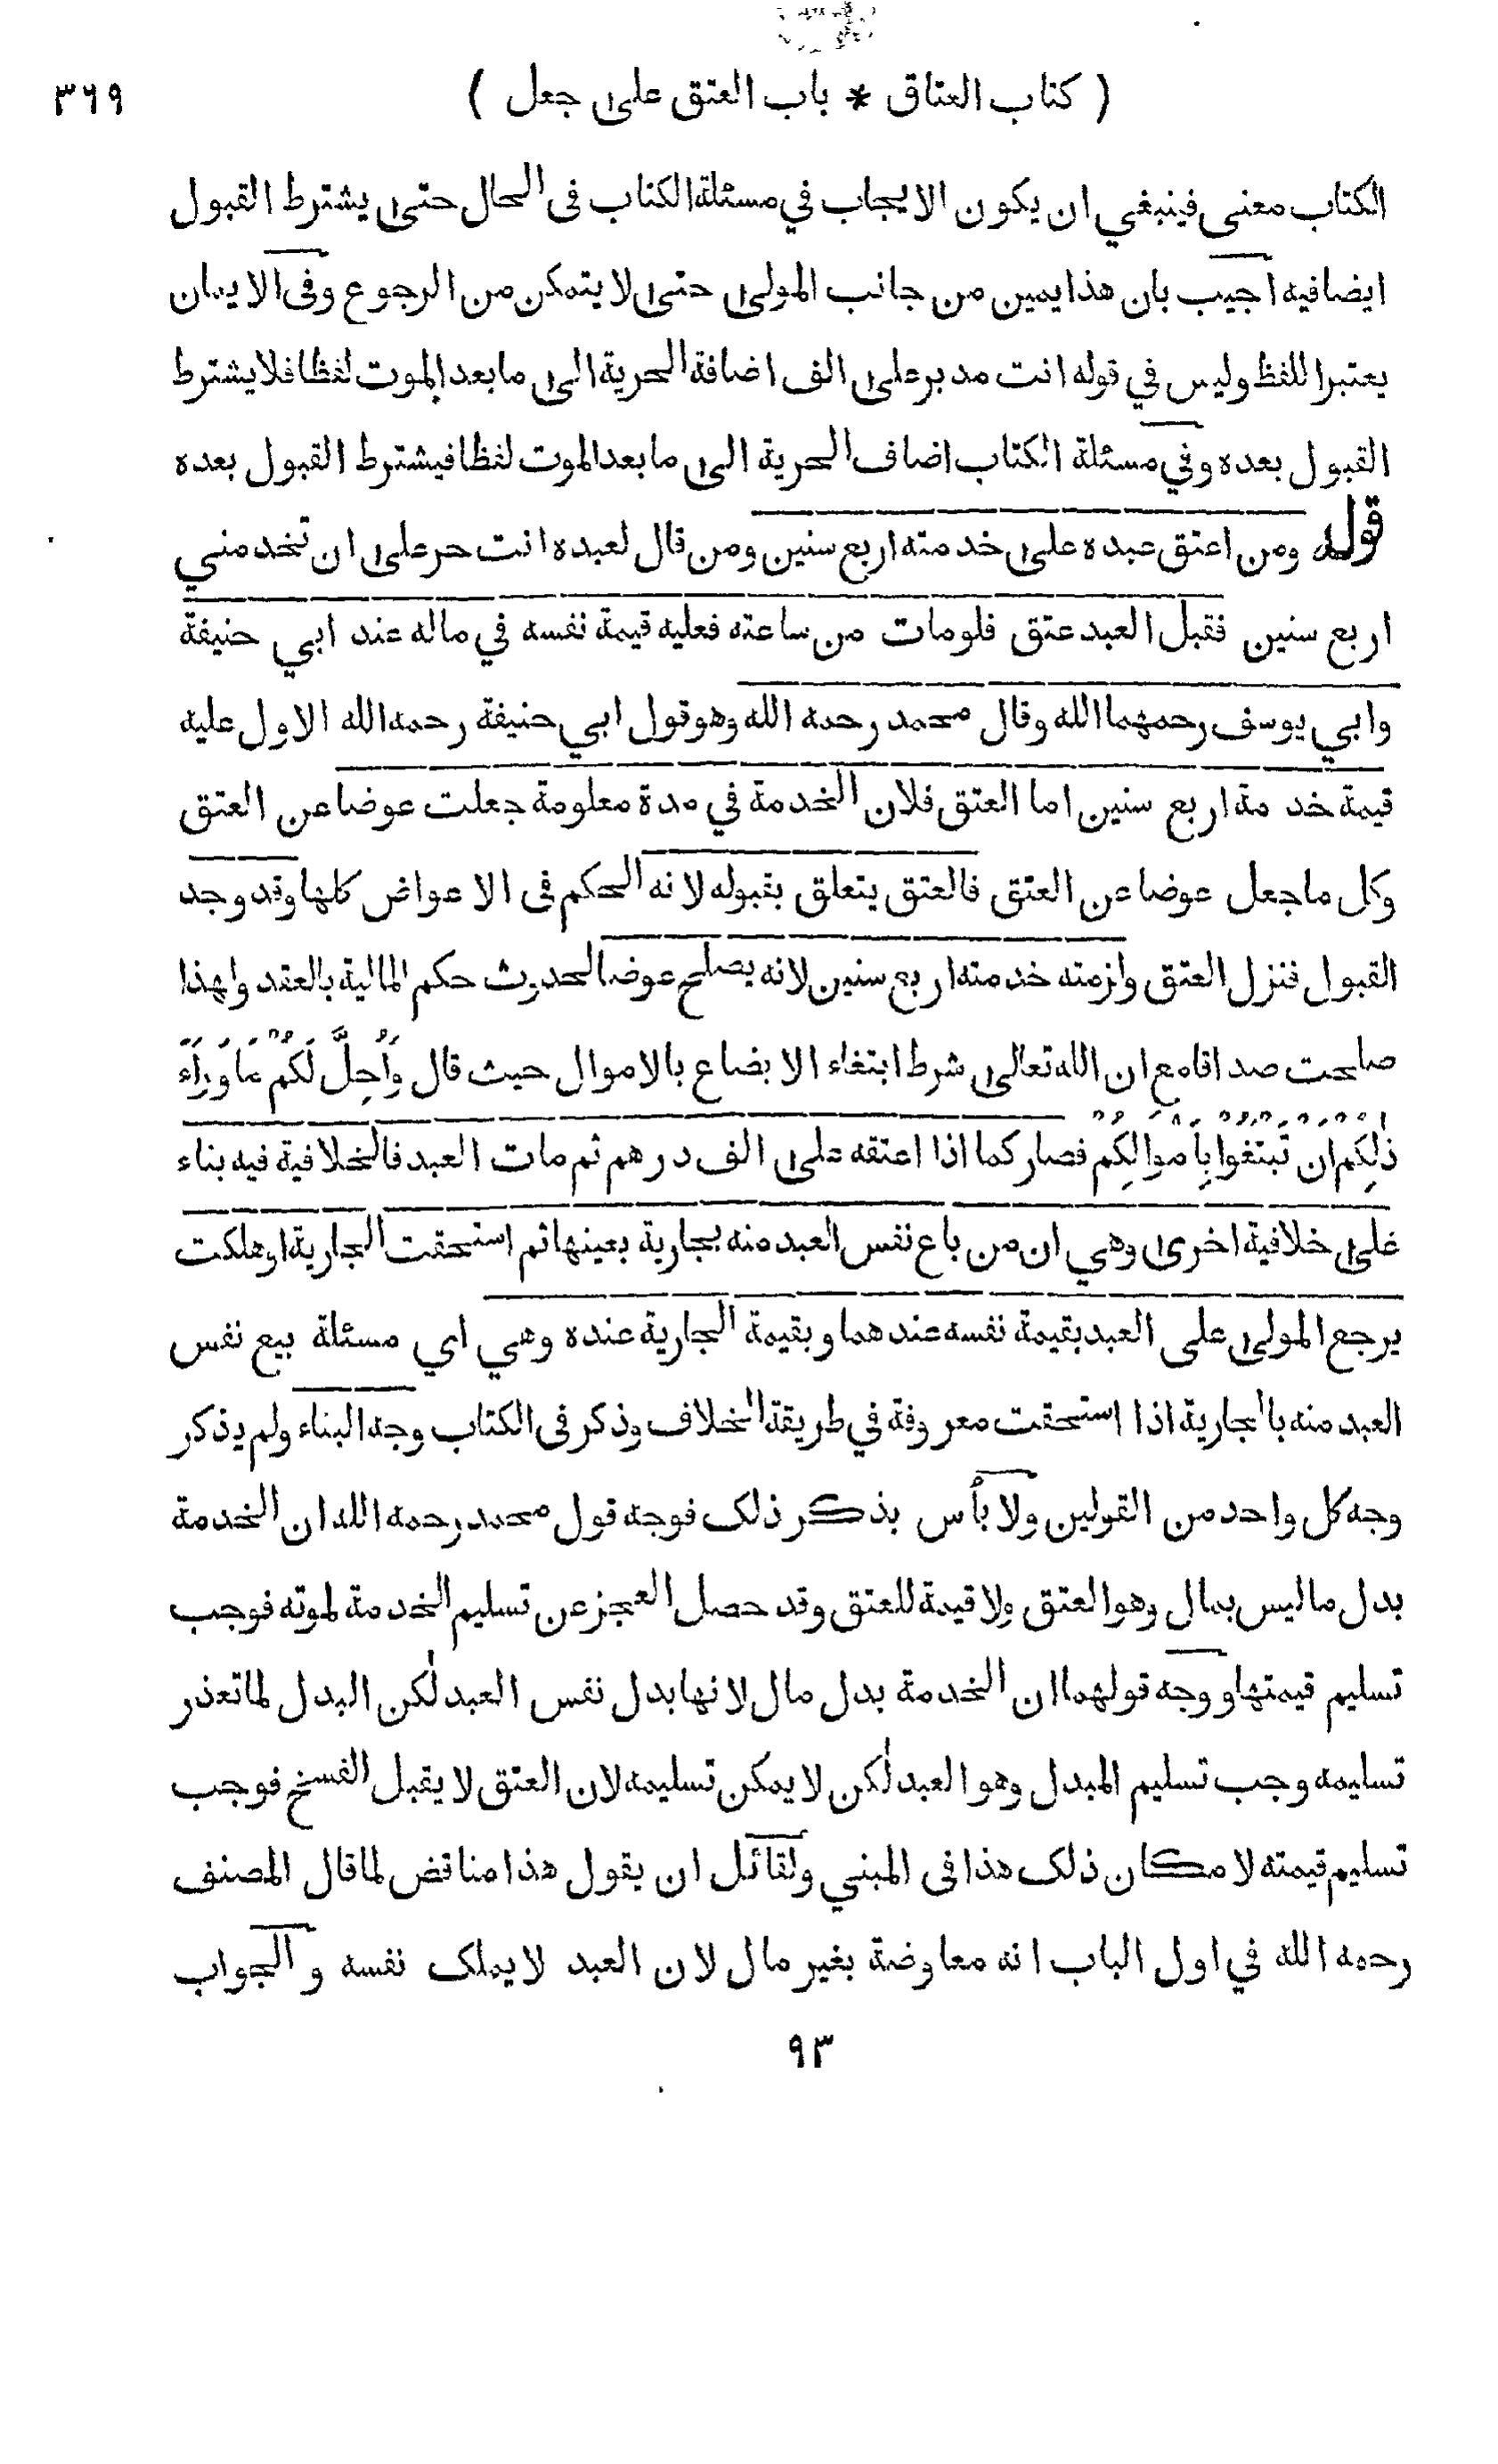 ( كتاب العتاق * باب العتق على جعل ) ٣٦٩
الكتاب معنى فينبغي ان يكون الايجاب في مسئلة الكتاب فى الحال حتى يشترط القبول
ايضا فيه اجيب بان هذا يمين من جانب المولى حتى لا يتمكن من الرجوع وفى الايمان
يعتبر اللفظ وليس في قوله انت مدبر على الف اضافة الحرية الى ما بعد الموت لفظا فلا يشترط
القبول بعده وفي مسئلة الكتاب اضاف الحرية الى ما بعد الموت لفظا فيشترط القبول بعده
قوله ومن اعتق عبده على خدمته اربع سنين ومن قال لعبده انت حر على ان تخدمني
اربع سنين فقبل العبد عتق فلومات من ساعته فعليه قيمة نفسه في ماله عند ابي حنيفة
وابي يوسف رحمهما الله وقال محمد رحمه الله وهو قول ابي حنيفة رحمه الله الاول عليه
قيمة خدمة اربع سنين اما العتق فلان الخدمة في مدة معلومة جعلت عوضا عن العتق
وكل ما جعل عوضا عن العتق فالعتق يتعلق بقبوله لانه الحكم فى الاعواض كلها وقد وجد
القبول فنزل العتق ولزمته خدمته اربع سنين لانه يصلح عوضا لحدوث حكم المالية بالعقد ولهذا
صلحت صداقا مع ان الله تعالى شرط ابتغاء الابضاع بالاموال حيث قال وَاُحِلَّ لَكُمْ مَا وَرَآءَ
ذٰلِكُمْ اَنْ تَبْتَغُوا بِاَمْوَالِكُمْ فصار كما اذا اعتقه على الف درهم ثم مات العبد فالخلافية فيه بناء
على خلافية اخرى وهي ان من باع نفس العبد منه بجارية بعينها ثم استحقت الجارية او هلكت
يرجع المولى على العبد بقيمة نفسه عندهما وبقيمة الجارية عنده وهي اي مسئلة بيع نفس
العبد منه بالجارية اذا استحقت معروفة في طريقة الخلاف وذكر فى الكتاب وجه البناء ولم يذكر
وجه كل واحد من القولين ولا بأس بذكر ذلك فوجه قول محمد رحمه الله ان الخدمة
بدل ما ليس بمال وهو العتق ولا قيمة للعتق وقد حصل العجز عن تسليم الخدمة لموته فوجب
تسليم قيمتها ووجه قولهما ان الخدمة بدل مال لانها بدل نفس العبد لٰكن البدل لما تعذر
تسليمه وجب تسليم المبدل وهو العبد لٰكن لا يمكن تسليمه لان العتق لا يقبل الفسخ فوجب
تسليم قيمته لا مكان ذلك هذا فى المبني ولقائل ان يقول هذا مناقض لما قال المصنف
رحمه الله في اول الباب انه معاوضة بغير مال لان العبد لا يملك نفسه والجواب
٩٣